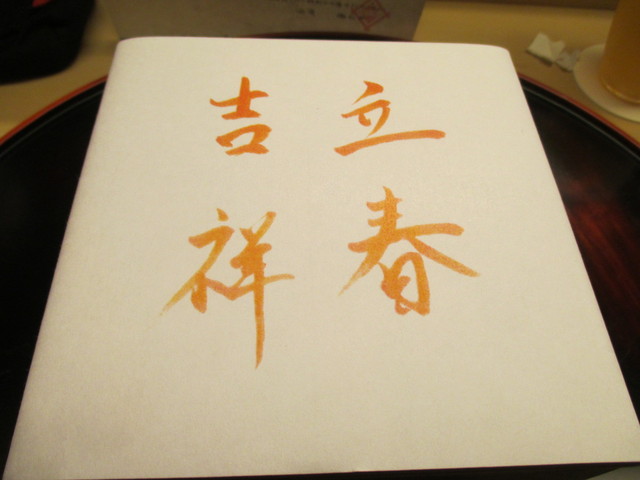 立春
吉祥